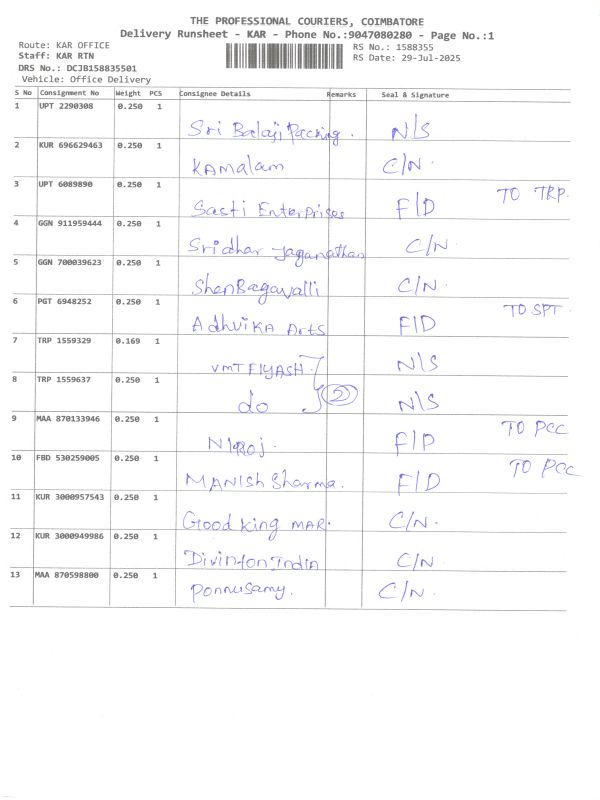 THE PROFESSIONAL COURIERS, COIMBATORE
Delivery Runsheet - KAR - Phone No.:9047080280 - Page No.:1
Route: KAR OFFICE
RS No.: 1588355
Staff: KAR RTN
RS Date: 29-Jul-2025
DRS No.: DCJB158835501
Vehicle: Office Delivery
S No Consignment No Weight PCS Consignee Details Remarks Seal & Signature
1 UPT 2290308 0.250 1 Sri Balaji Packing. N/S
2 KUR 696629463 0.250 1 KAmalam C/N.
3 UPT 6089890 0.250 1 Sasti Enterprises F/D TO TRP.
4 GGN 911959444 0.250 1 Sridhar Jaganathan C/N.
5 GGN 700039623 0.250 1 ShenBagavalli C/N.
6 PGT 6948252 0.250 1 AdhviKA Arts F/D TO SPT.
7 TRP 1559329 0.169 1 VMT FlYASH. N/S
8 TRP 1559637 0.250 1 do (2) N/S
9 MAA 870133946 0.250 1 F/D TO PCC
10 FBD 530259005 0.250 1 MANISh Sharma. F/D TO PCC
11 KUR 3000957543 0.250 1 Good King MAR. C/N.
12 KUR 3000949986 0.250 1 India C/N.
13 MAA 870598800 0.250 1 Ponnusamy. C/N.